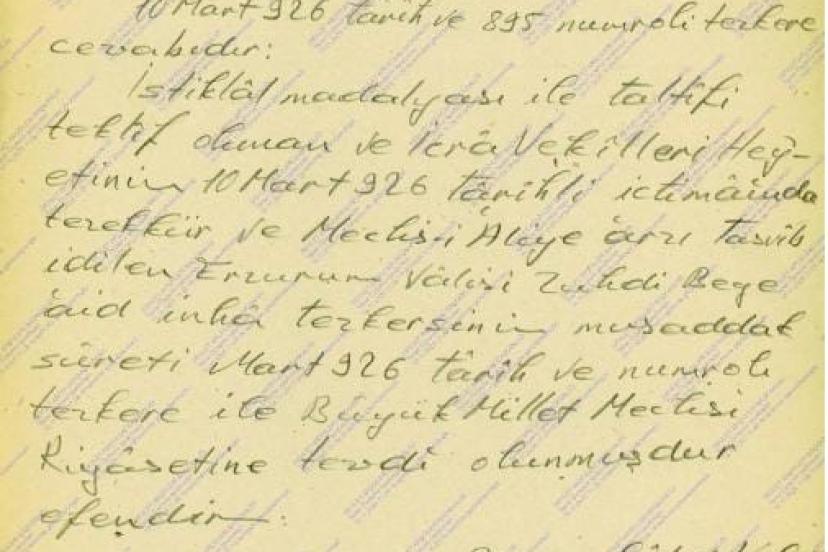 10 Mart 926 târih ve 895 numroli tezkere
cevabıdır:
İstiklâl madalyası ile taltîfi
teklîf olunan ve İcrâ Vekîlleri Hey-
etinin 10 Mart 926 târihli ictimâında
tezekkür ve Meclis-i Âliye arzı tasvîb
idilen Erzurum Vâlisi Zuhdi Beye
âid inhâ tezkersinin musaddak
sûreti Mart 926 târih ve numrolı
tezkere ile Büyük Millet Meclisi
Riyâsetine tevdî olunmuşdur
efendim.